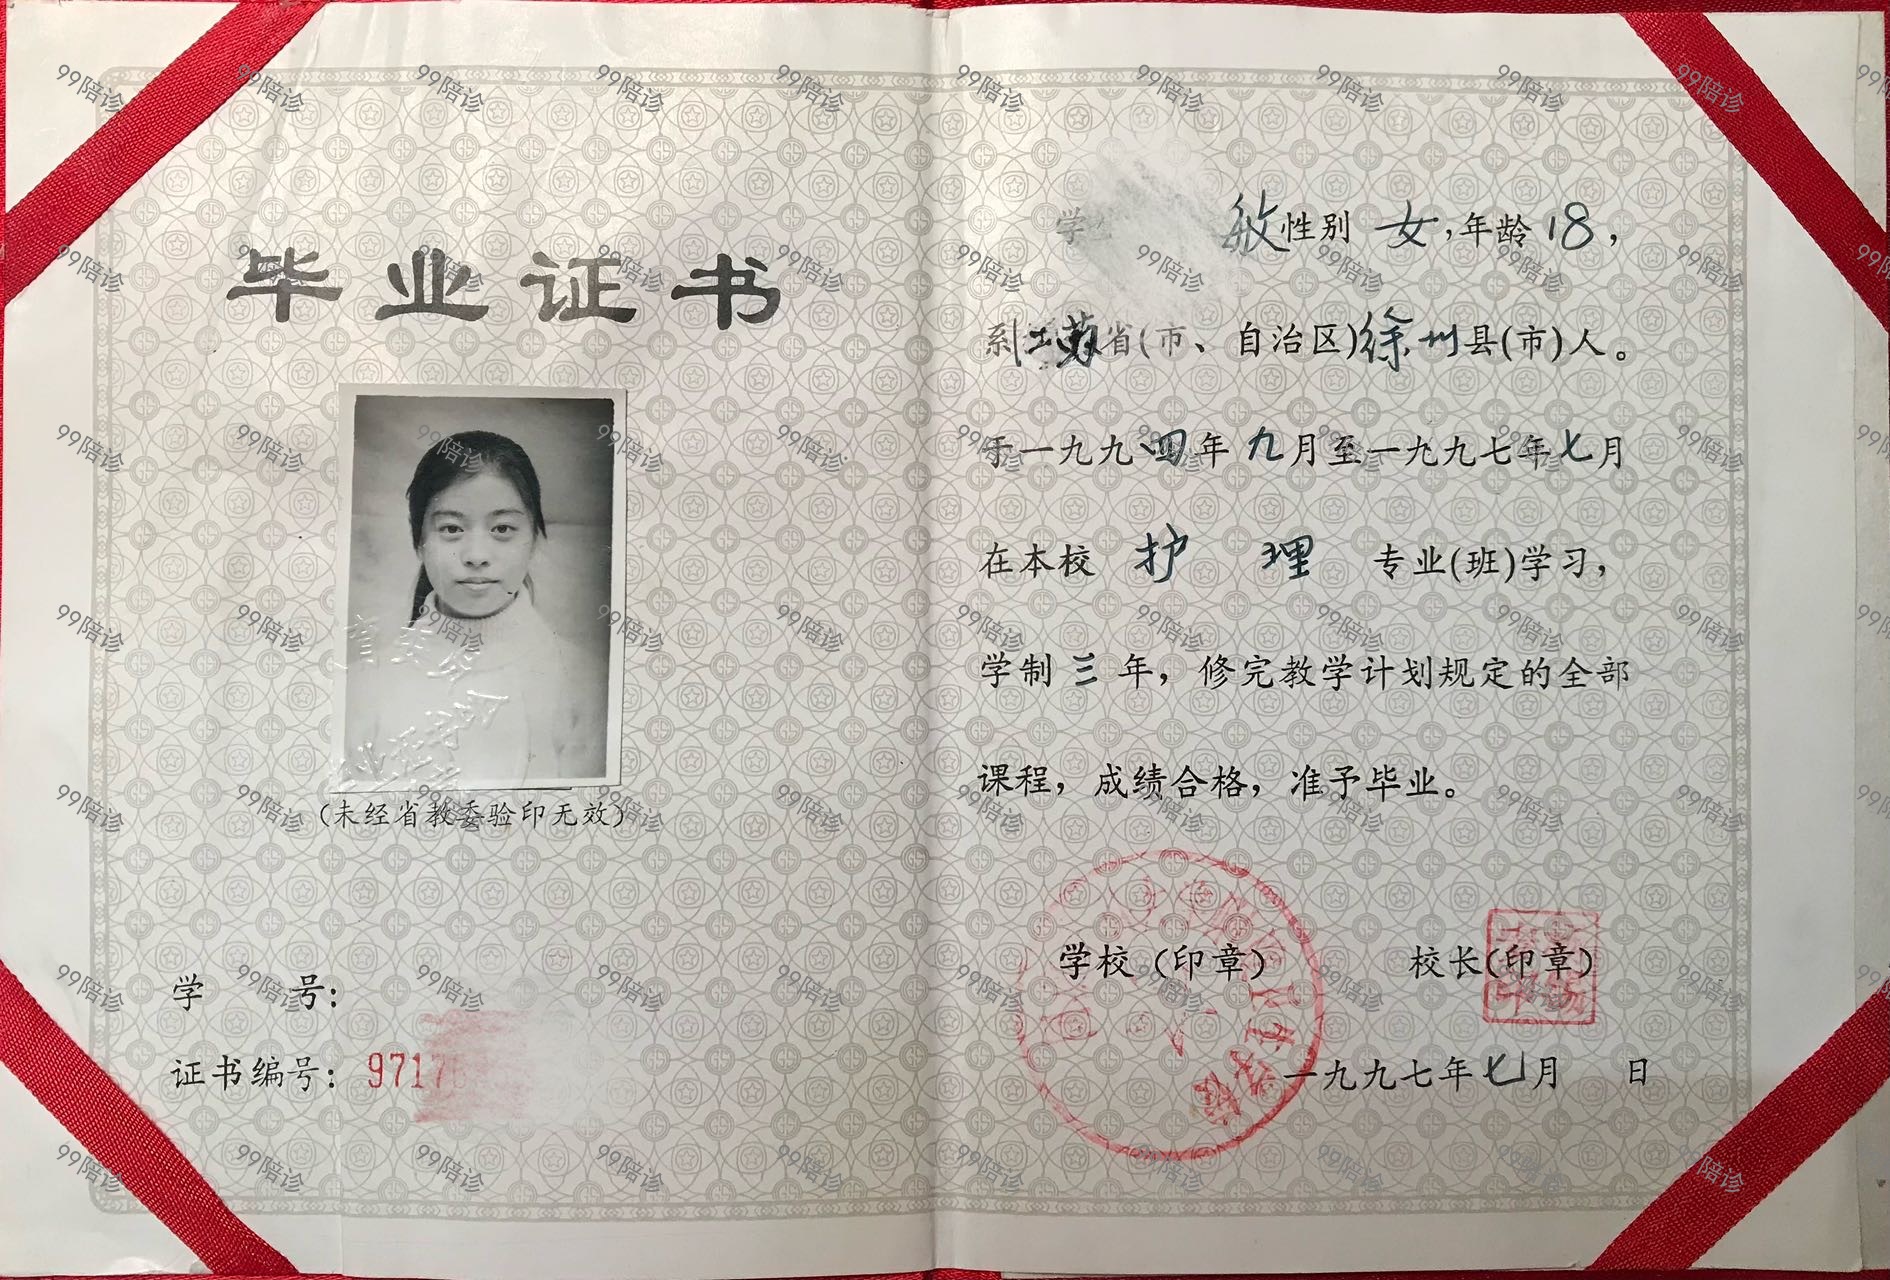 毕业证书
(未经省教委验印无效)
学 号:
证书编号: 9717
学 敏性别 女,年龄18,
系江苏省(市、自治区)徐州县(市)人。
于一九九四年九月至一九九七年七月
在本校 护 理 专业(班)学习,
学制三年,修完教学计划规定的全部
课程,成绩合格,准予毕业。
学校(印章) 校长(印章)
一九九七年七月 日
99陪诊